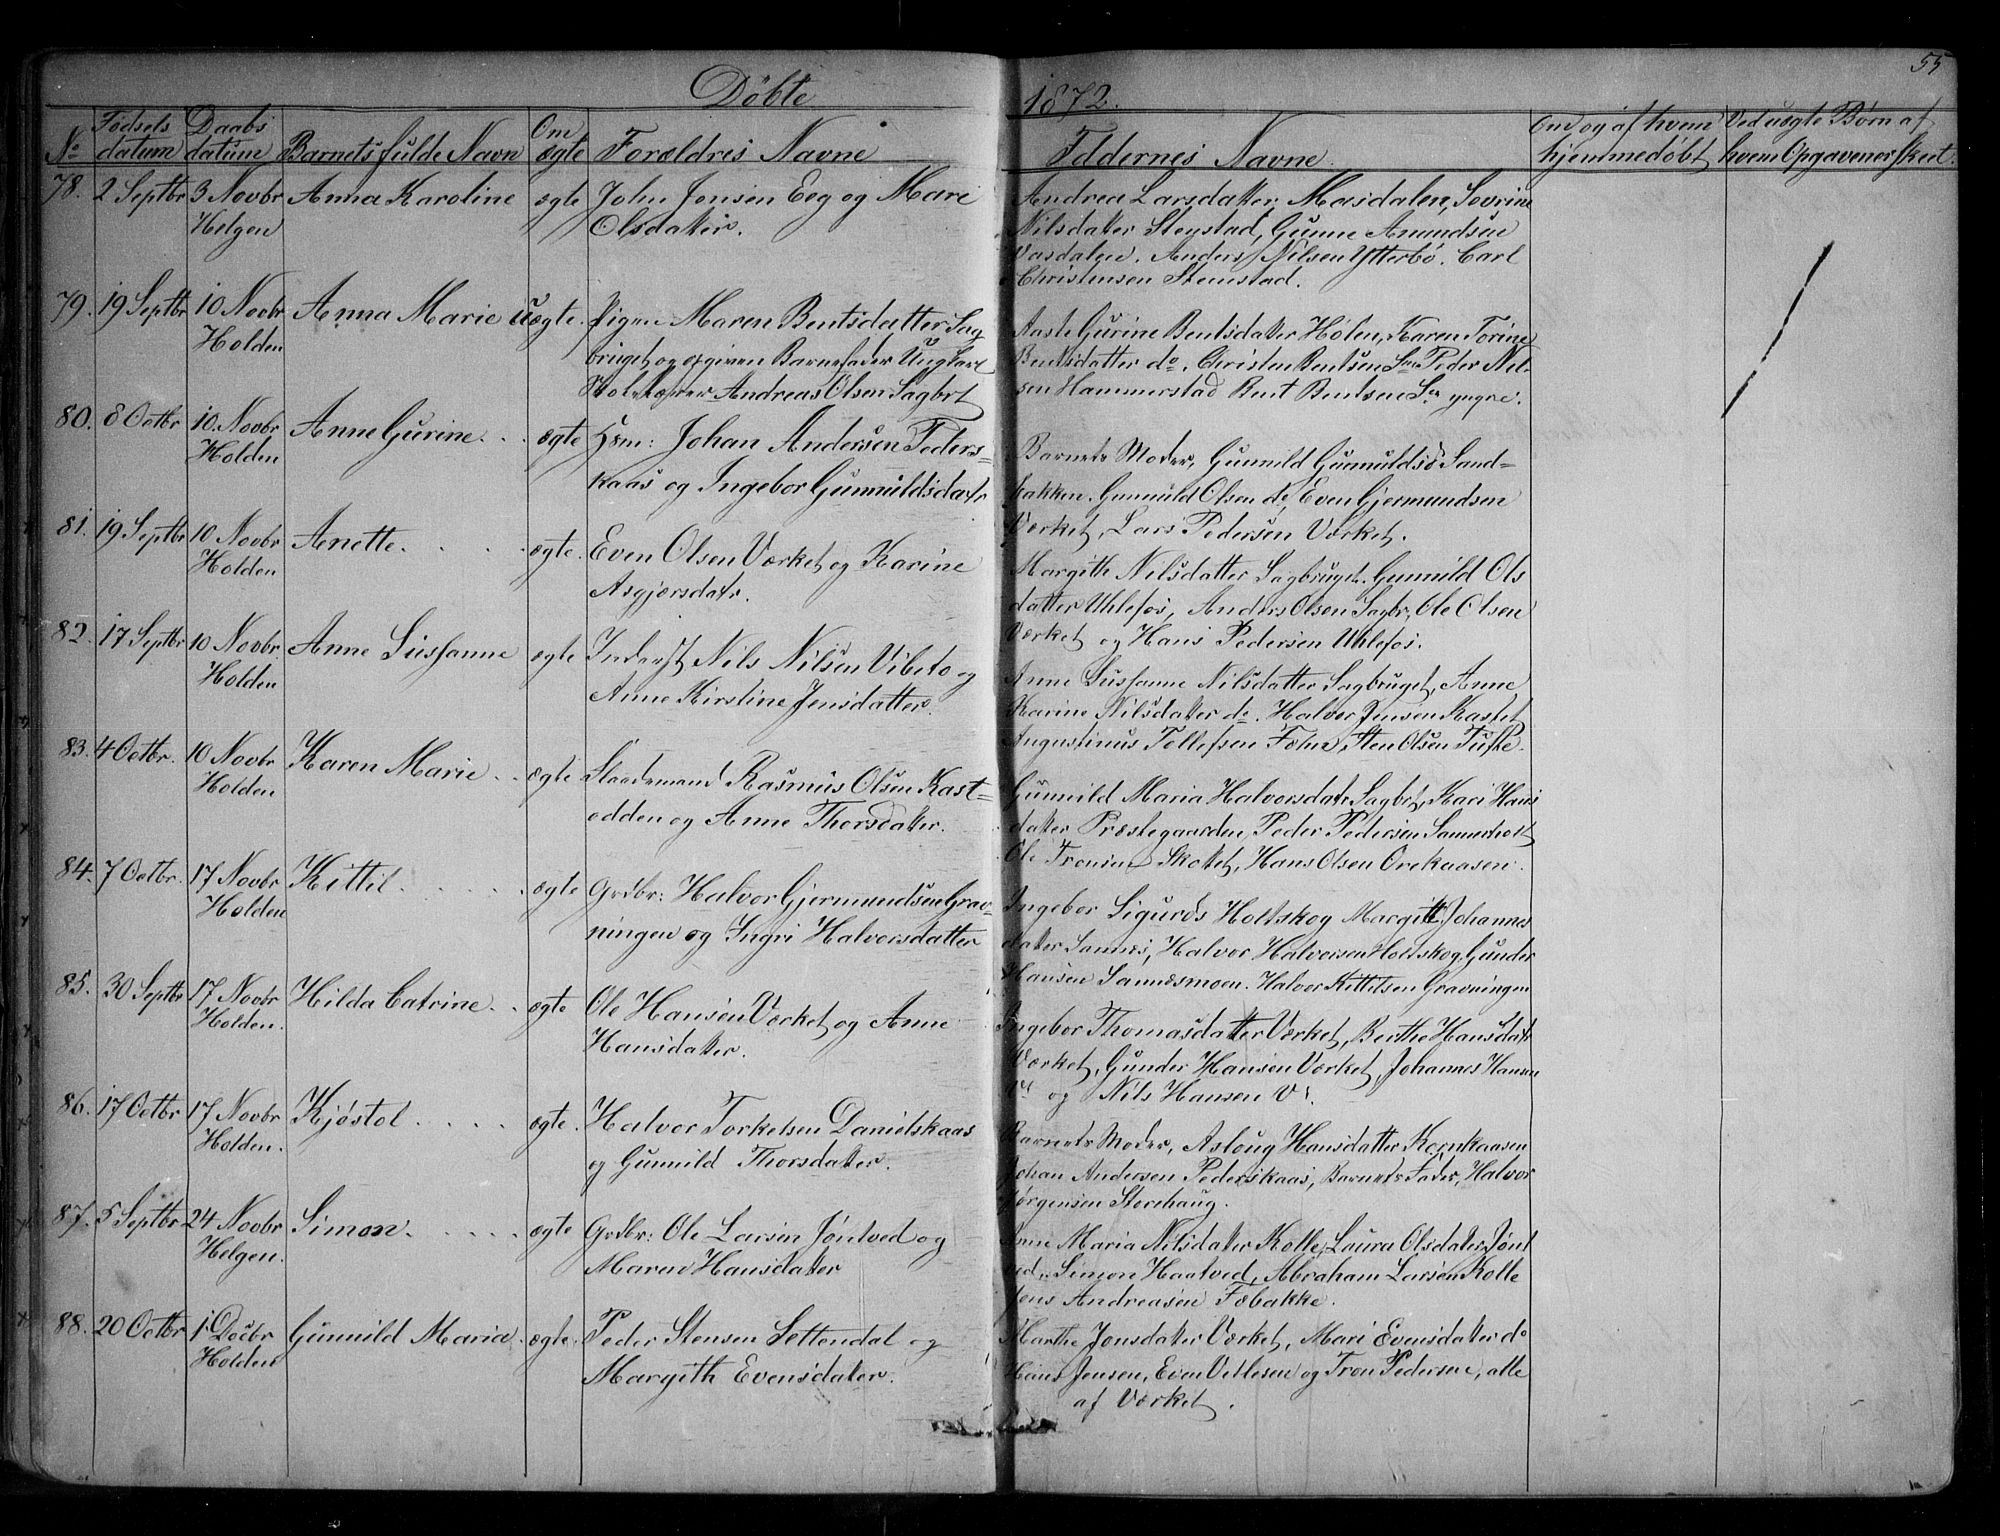 55
Døbte 1872.
No Fødsels datum Daabs datum Barnets fulde Navn Om ægte Forældres Navne Fddernes Navne Om og af hvem hjemmedøbt Ved uægte Børn af hvem Opgaven er skeet.
78. 2 Septbr 3 Novbr Anna Karoline ægte John Jensen Eeg og Mari
Helgen Olsdatter.
Andrea Larsdatter Masdalen, Sevrine
Nilsdater Stenstad, Gunne Amundsen
Vasdalen. Anders Nilsen Ytterbö. Carl
Christensen Stenstad.
79. 19 Septbr 10 Novbr Anna Marie uægte. Pigen Maren Bentsdatter Sag
Holden bruget og opgiven Barnefader Ungkarl
Andreas Olsen Sagbrt
Aaste Gurine Bentsdater Holen, Karen Torine
Bentsdatter do. Christen Bentsen Peder Nil-
sen Hammerstad Bent Bentsen yngre.
80. 8 Octbr 10. Novbr Anne Gurine. . . ægte Hsm: Johan Andersen Peders-
Holden kaas og Ingebor Gunnuldsdatr
Barnets Moder, Gunnild Gunnuldsd Sand-
bakken. Gunnuld Olsen do, Even Gjermundsen
Værket, Lars Pedersen Værket.
81. 19 Septbr 10 Novbr Anette. . . . . ægte. Even Olsen Værket og Karine
Holden Asgjersdatr.
Margithe Nilsdatter Sagbruget. Gunnild Ols
datter Uhlefos, Anders Olsen Sagbr, Ole Olsen
Værket og Hans Pedersen Uhlefos.
82. 17 Septbr 10 Novbr Anne Sussanne ægte Inderst Nils Nilsen Vibeto og
Holden Anne Kirstine Jensdatter.
Anne Sussanne Nilsdatter Sagbruget, Anne
Karine Nilsdater do. Halvor Jensen Kastet
Augustinus Tollefsen Fæhn, Sten Olsen Tufte.
83. 4 Octbr. 10 Novbr Karen Marie . . ægte Rasmus Olsen Kast-
Holden odden og Anne Thorsdater.
Gunnild Maria Halvorsdatr Sagbrt, Kari Hans
dater Præstegaarden, Peder Pedersen Sannerholt
Ole Tronsen Skotet, Hans Olsen Orekaasen.
84. 7 Octbr. 17 Novbr Kittil. . . . . . ægte Grdbr: Halvor Gjermundsen Grav-
Holden ningen og Ingri Halvorsdatter
Ingebor Sigurds Holtskog Margit Johannes
dater Sannes, Halvor Halvorsen Holtskog, Gunder
Hansen Sannesmoen. Halvor Kittilsen Gravningen
85. 30 Septbr 17 Novbr Hilda Catrine. . ægte Ole Hansen Værket og Anne
Holden. Hansdater.
Ingebor Thomasdatter Værket, Berthe Hansdatr
Værket, Gunder Hansen Værket, Johannes Hansen
Vt og Nils Hansen Vt.
86. 17 Octbr 17 Novbr Kjøstol . . . . . ægte. Halvor Torkelsen Danielskaas
Holden. og Gunnild Thorsdater.
Barnets Moder, Asloug Hansdatter Kornkaasen
Johan Andersen Pederskaas, Barnets Fader, Halvor
Jørgensen Storehaug.
87. 5 Septbr 24 Novbr Simon. . . . . . ægte Grdbr: Ole Larsen Jöntved og
Helgen. Maren Hansdater
Anne Maria Nilsdater Kolle, Laura Olsdater Jönt
ved, Simon Haatved, Abraham Larsen Kolle
Jens Andreasen Fæbakke.
88. 20 Octbr 1 Decbr Gunnild Maria. ægte. Peder Stensen Settendal og
Holden Margith Evensdater.
Marthe Jonsdater Værket, Mari Evensdater do
Hans Jensen, Even Vetlesen og Tron Pedersen, alle
af Værket.